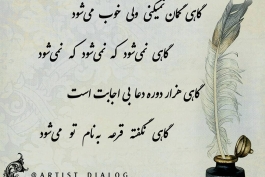 گاهی گمان نمیکنی ولی خوب می‌شود
گاهی نمی‌شود که نمی‌شود که نمی‌شود
گاهی هزار دوره دعا بی اجابت است
گاهی نگفته قرعه به‌نام تو می‌شود
@ARTIST_DIALOG